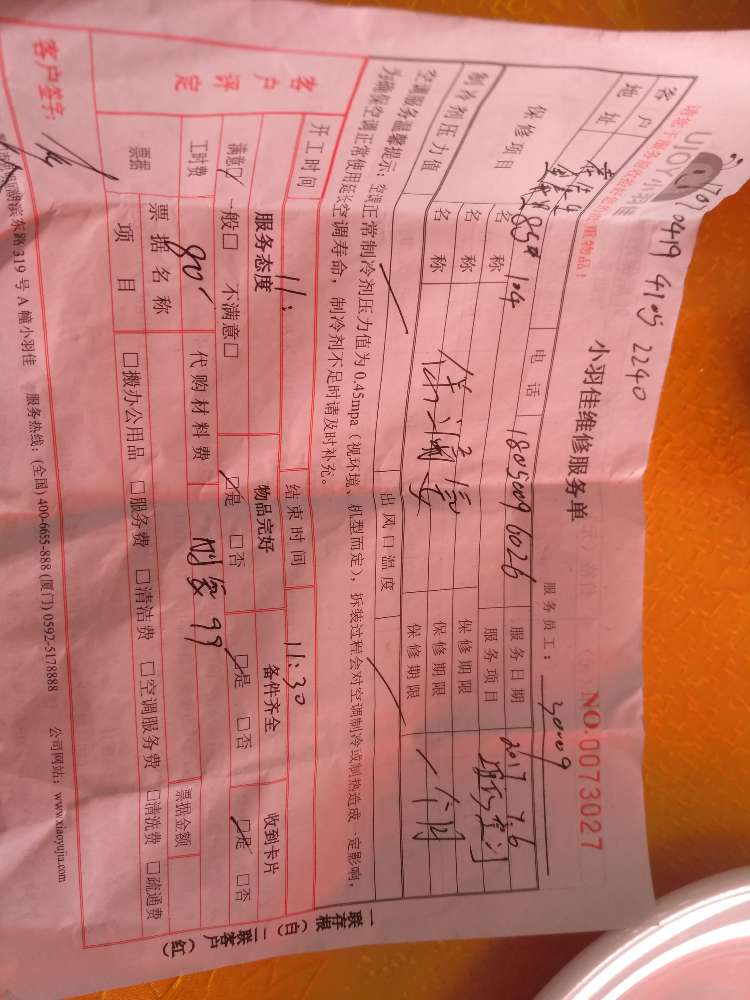 17070419 4105 2240
UJOY小羽佳
小羽佳维修服务单
NO.0073027
服务员工：30009
客户地址 85# 104 电话 18050096026 服务日期 2017.7.6
保修项目 名称 服务项目
名称 保修期限
名称 保修期限 一个月
保修期限
制冷剂压力值 出风口温度
空调服务温馨提示：空调正常制冷剂压力值为0.45mpa（视环境、机型而定），拆装过程会对空调制冷或制热造成一定影响，
为确保空调正常使用延长空调寿命，制冷剂不足时请及时补充。
开工时间 11: 结束时间 11:30
客户评定 服务态度 物品完好 备件齐全 收到卡片
满意□ 一般□ 不满意□ □是 □否 □是 □否 □是 □否
工时费 80 代购材料费 99
票据 票据名称 票据金额
项目 □搬办公用品 □服务费 □清洁费 □空调服务费 □清洗费 □疏通费
客户签字：
一联存根（白）二联客户（红）
湖滨东路319号A幢小羽佳 服务热线：(全国) 400-6655-888 (厦门) 0592-5178888 公司网站：www.xiaoyujia.com